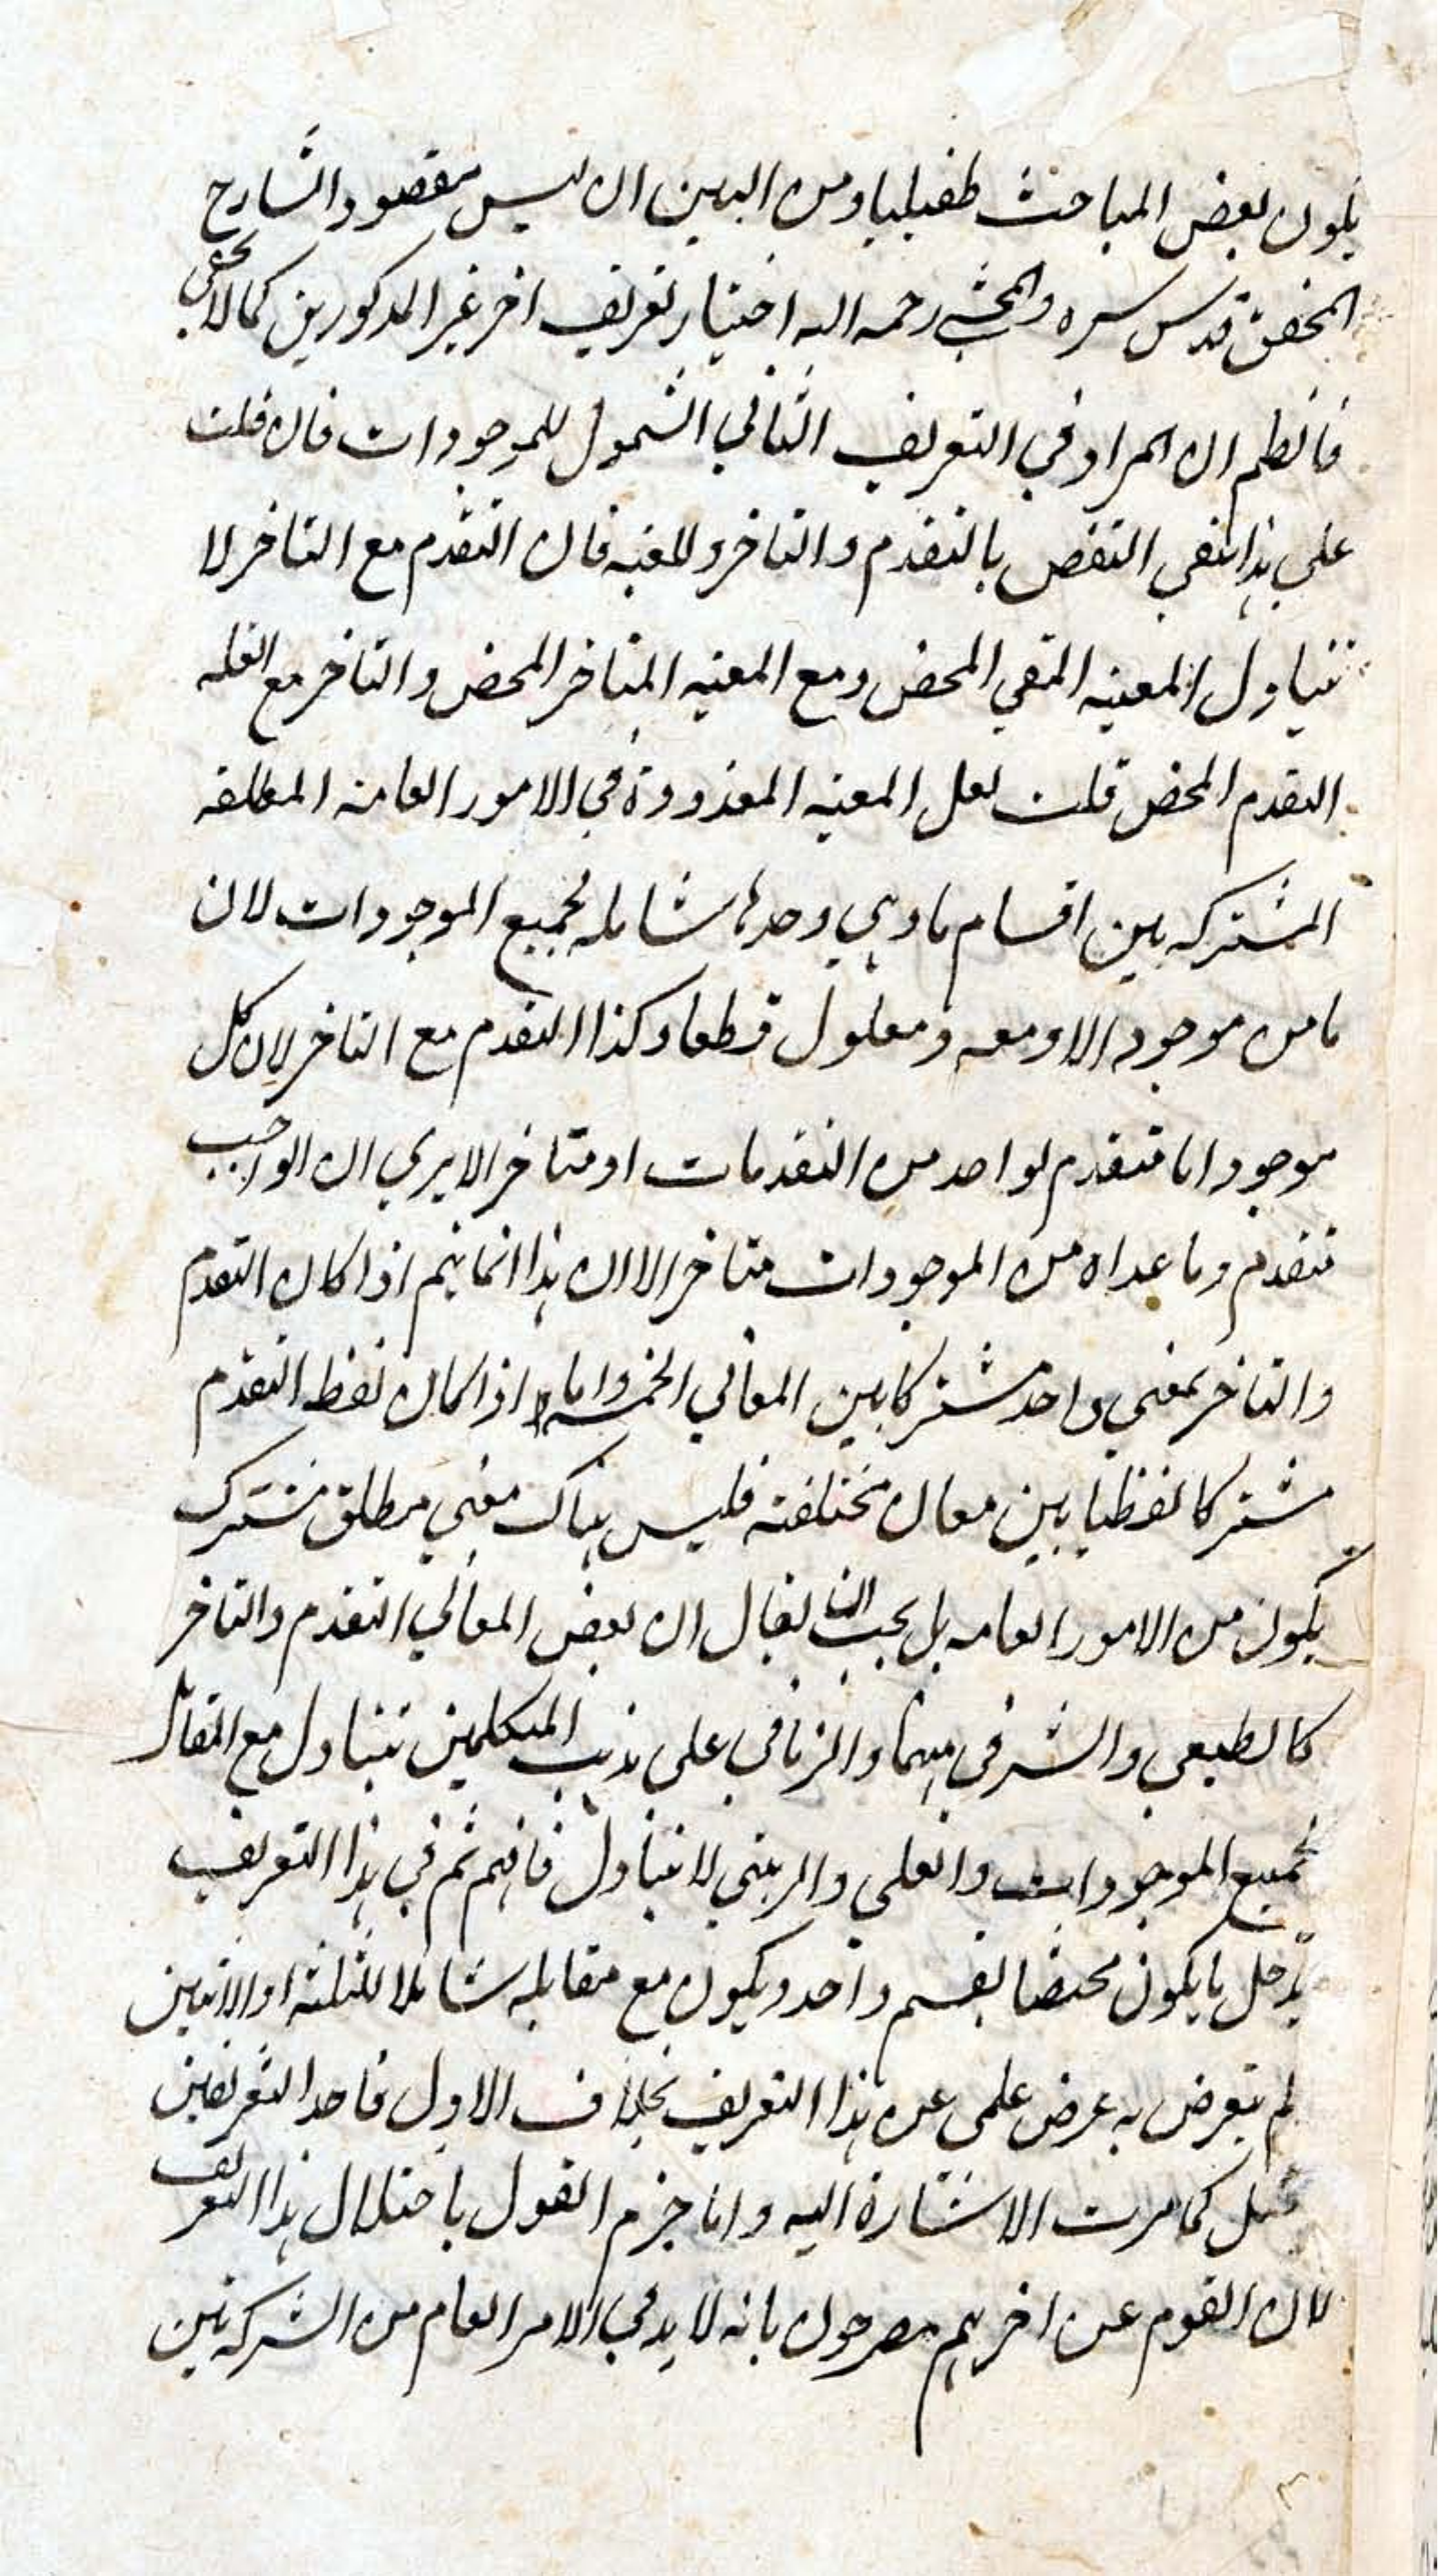 يكون بعض المباحث طفيليا ومن البين ان ليس مقصود الشارح
المحقق قدس سره والمحشي رحمه الله اختيار تعريف اخر غير المذكورين كما لا يخفى
فانظم ان المراد في التعريف الثاني الشمول للموجودات فان قلت
على هذا بقي النقض بالتقدم والتاخر والمعية فان التقدم مع التاخر لا
تتناول المعية المحض ومع المعية المتاخر المحض والتاخر مع
التقدم المحض قلت لعل المعية المعدودة في الامور العامة المطلقة
المشتركة بين اقسامها وهي وحدها شاملة لجميع الموجودات لان
ما من موجود الا ومعه ومعلول قطعا وكذا التقدم مع التاخر لان كل
موجود اما متقدم لواحد من التقدمات او متاخر الا يرى ان الواجب
متقدم وما عداه من الموجودات متاخر الا ان هذا انما يتم اذا كان التقدم
والتاخر بمعنى واحد مشتركا بين المعاني الخمسة واما اذا كان لفظ التقدم
مشتركا لفظيا بين معان مختلفة فليس هناك معنى مطلق مشترك
يكون من الامور العامة بل يجب ان يقال ان بعض المعاني التقدم والتاخر
كالطبعي والشرفي منهما والزماني على مذهب المتكلمين تتناول مع المقابل
لجميع الموجودات والعلي والرتبي لا تتناول فافهم ثم في هذا التعريف
يدخل ما يكون مختصا بقسم واحد ويكون مع مقابله شاملا للثلثة او الاثنين
لم يتعرض به غرض علمي عن هذا التعريف بخلاف الاول فاحد التعريفين
مختل كما مرت الاشارة اليه واما جزم القول باختلال هذا التعريف
لان القوم عن اخريهم مصرحون بانه لا بد في الامر العام من الشركة بين